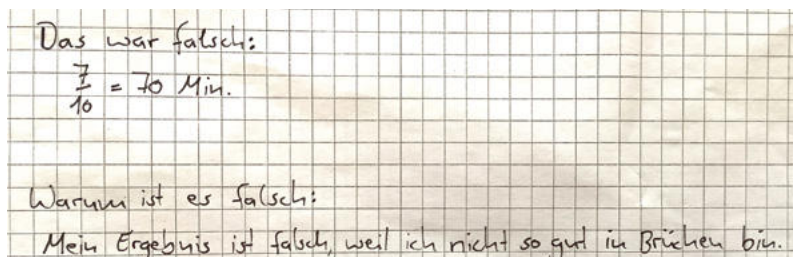 Das war falsch:
7/10 = 70 Min.
Warum ist es falsch:
Mein Ergebnis ist falsch, weil ich nicht so gut in Brüchen bin.